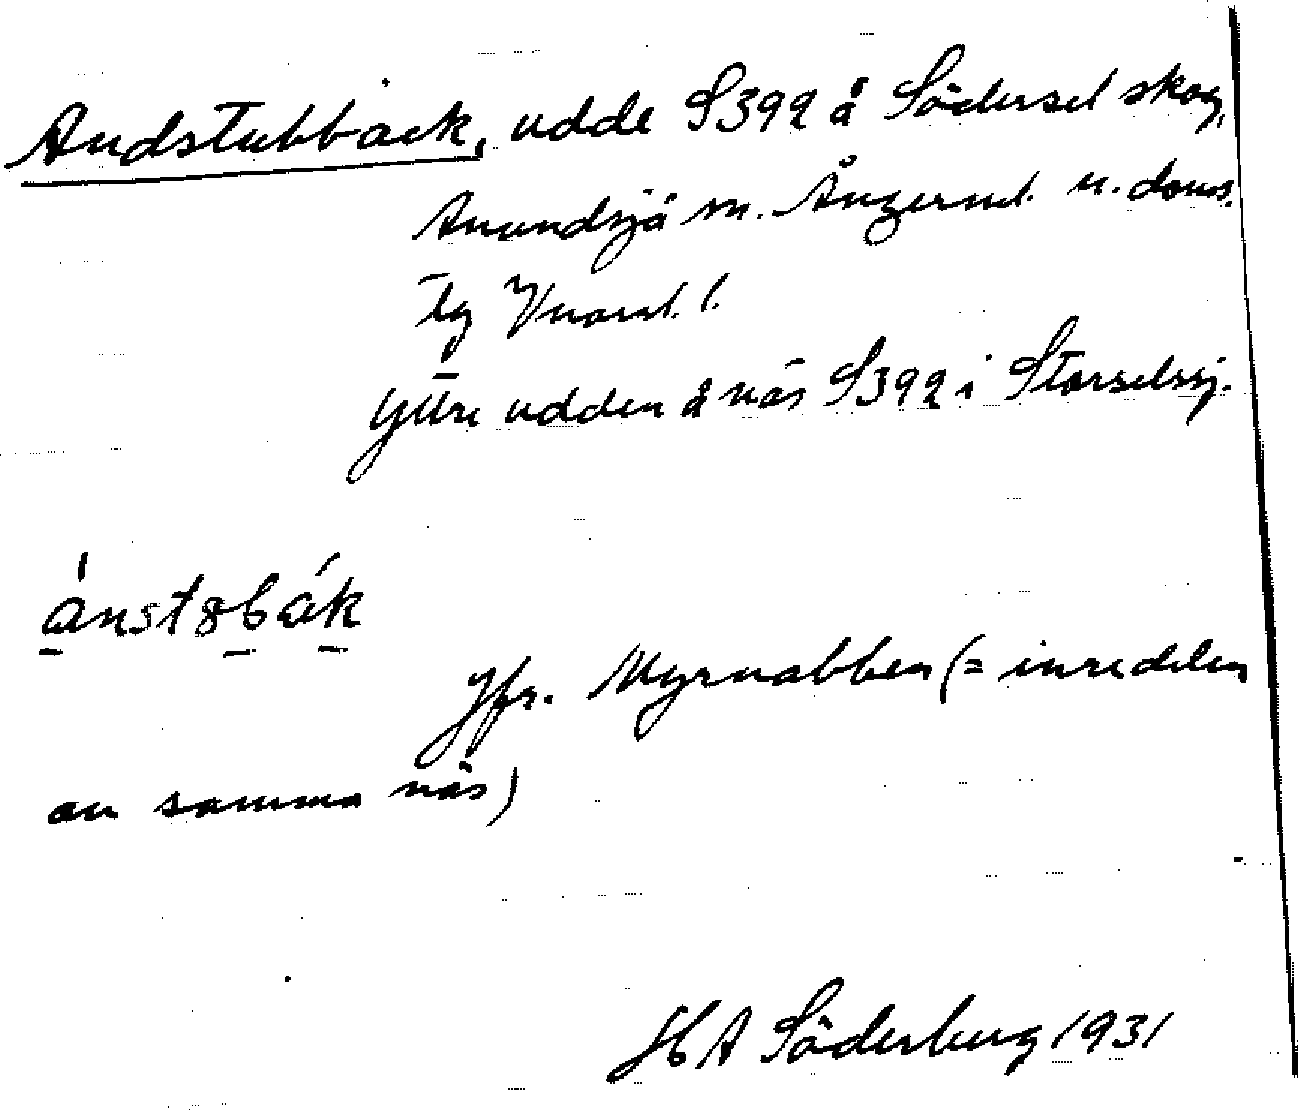 Andstubback, udde S392 å Södersel skog,
Anundsjö sn. Ångerml. n. doms.
tg Vnorrl. l.
Yttre udden å näs S392 i Storselssj.
ánstobák
Jfr. Myrnabben (= inre delen
av samma näs)
H A Söderberg 1931